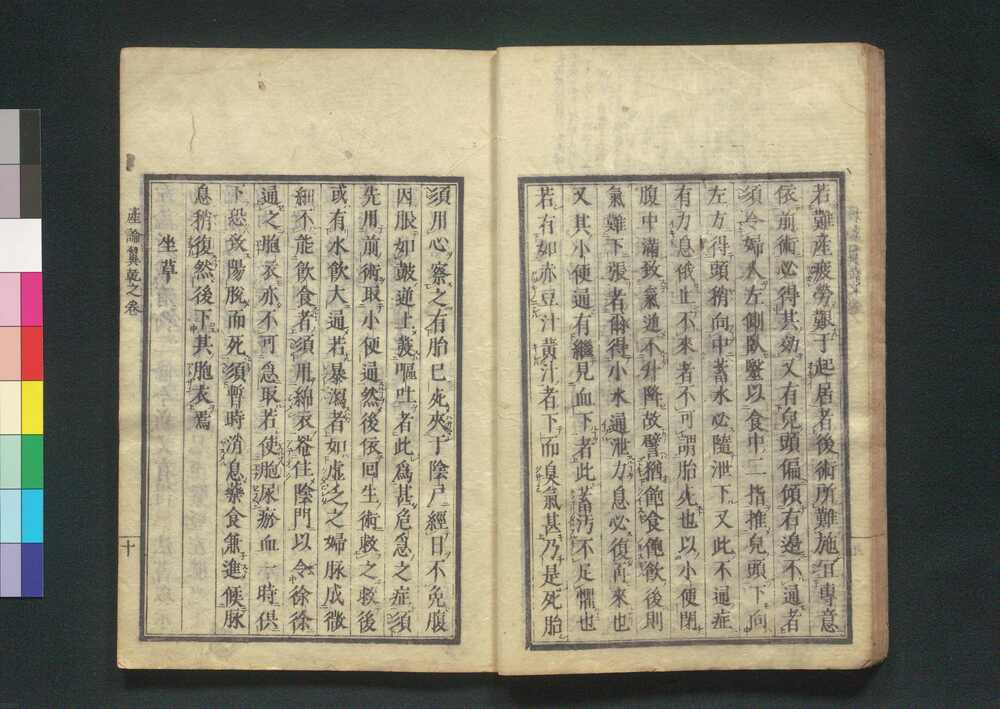 若難産疲勞艱于起居者後術所難施宜專意
依前術必得其効又有兒頭偏傾右邊不通者
須令婦人左側臥毉以食中二指推兒頭下向
左方得頭稍向中蓄水必隨泄下又此不通症
有力息俄止不来者不可謂胎死也以小便閉
腹中滿致氣逆不升降故譬猶飽食飽飲後則
氣難下張者爾得小水通泄力息必復再来也
又其小便通有繼見血下者此蓄汚不足懼也
若有如赤豆汁黄汁者下而臭氣甚乃是死胎
須用心察之有胎已死夾于陰戸經日不免腹
因脹如皷逆上發嘔吐者此爲甚危急之症須
先用前術取小便通然後依回生術救之救後
或有水飲大通若暴瀉者如虚乏之婦脉成微
細不能飲食者須用綿衣菴住陰門以令徐徐
通之胞衣亦不可急取若使胞尿瘀血一時倶
下恐致陽脱而死須暫時消息藥食兼進候脉
息稍復然後下其胞衣焉
坐草
産論翼乾之卷
十